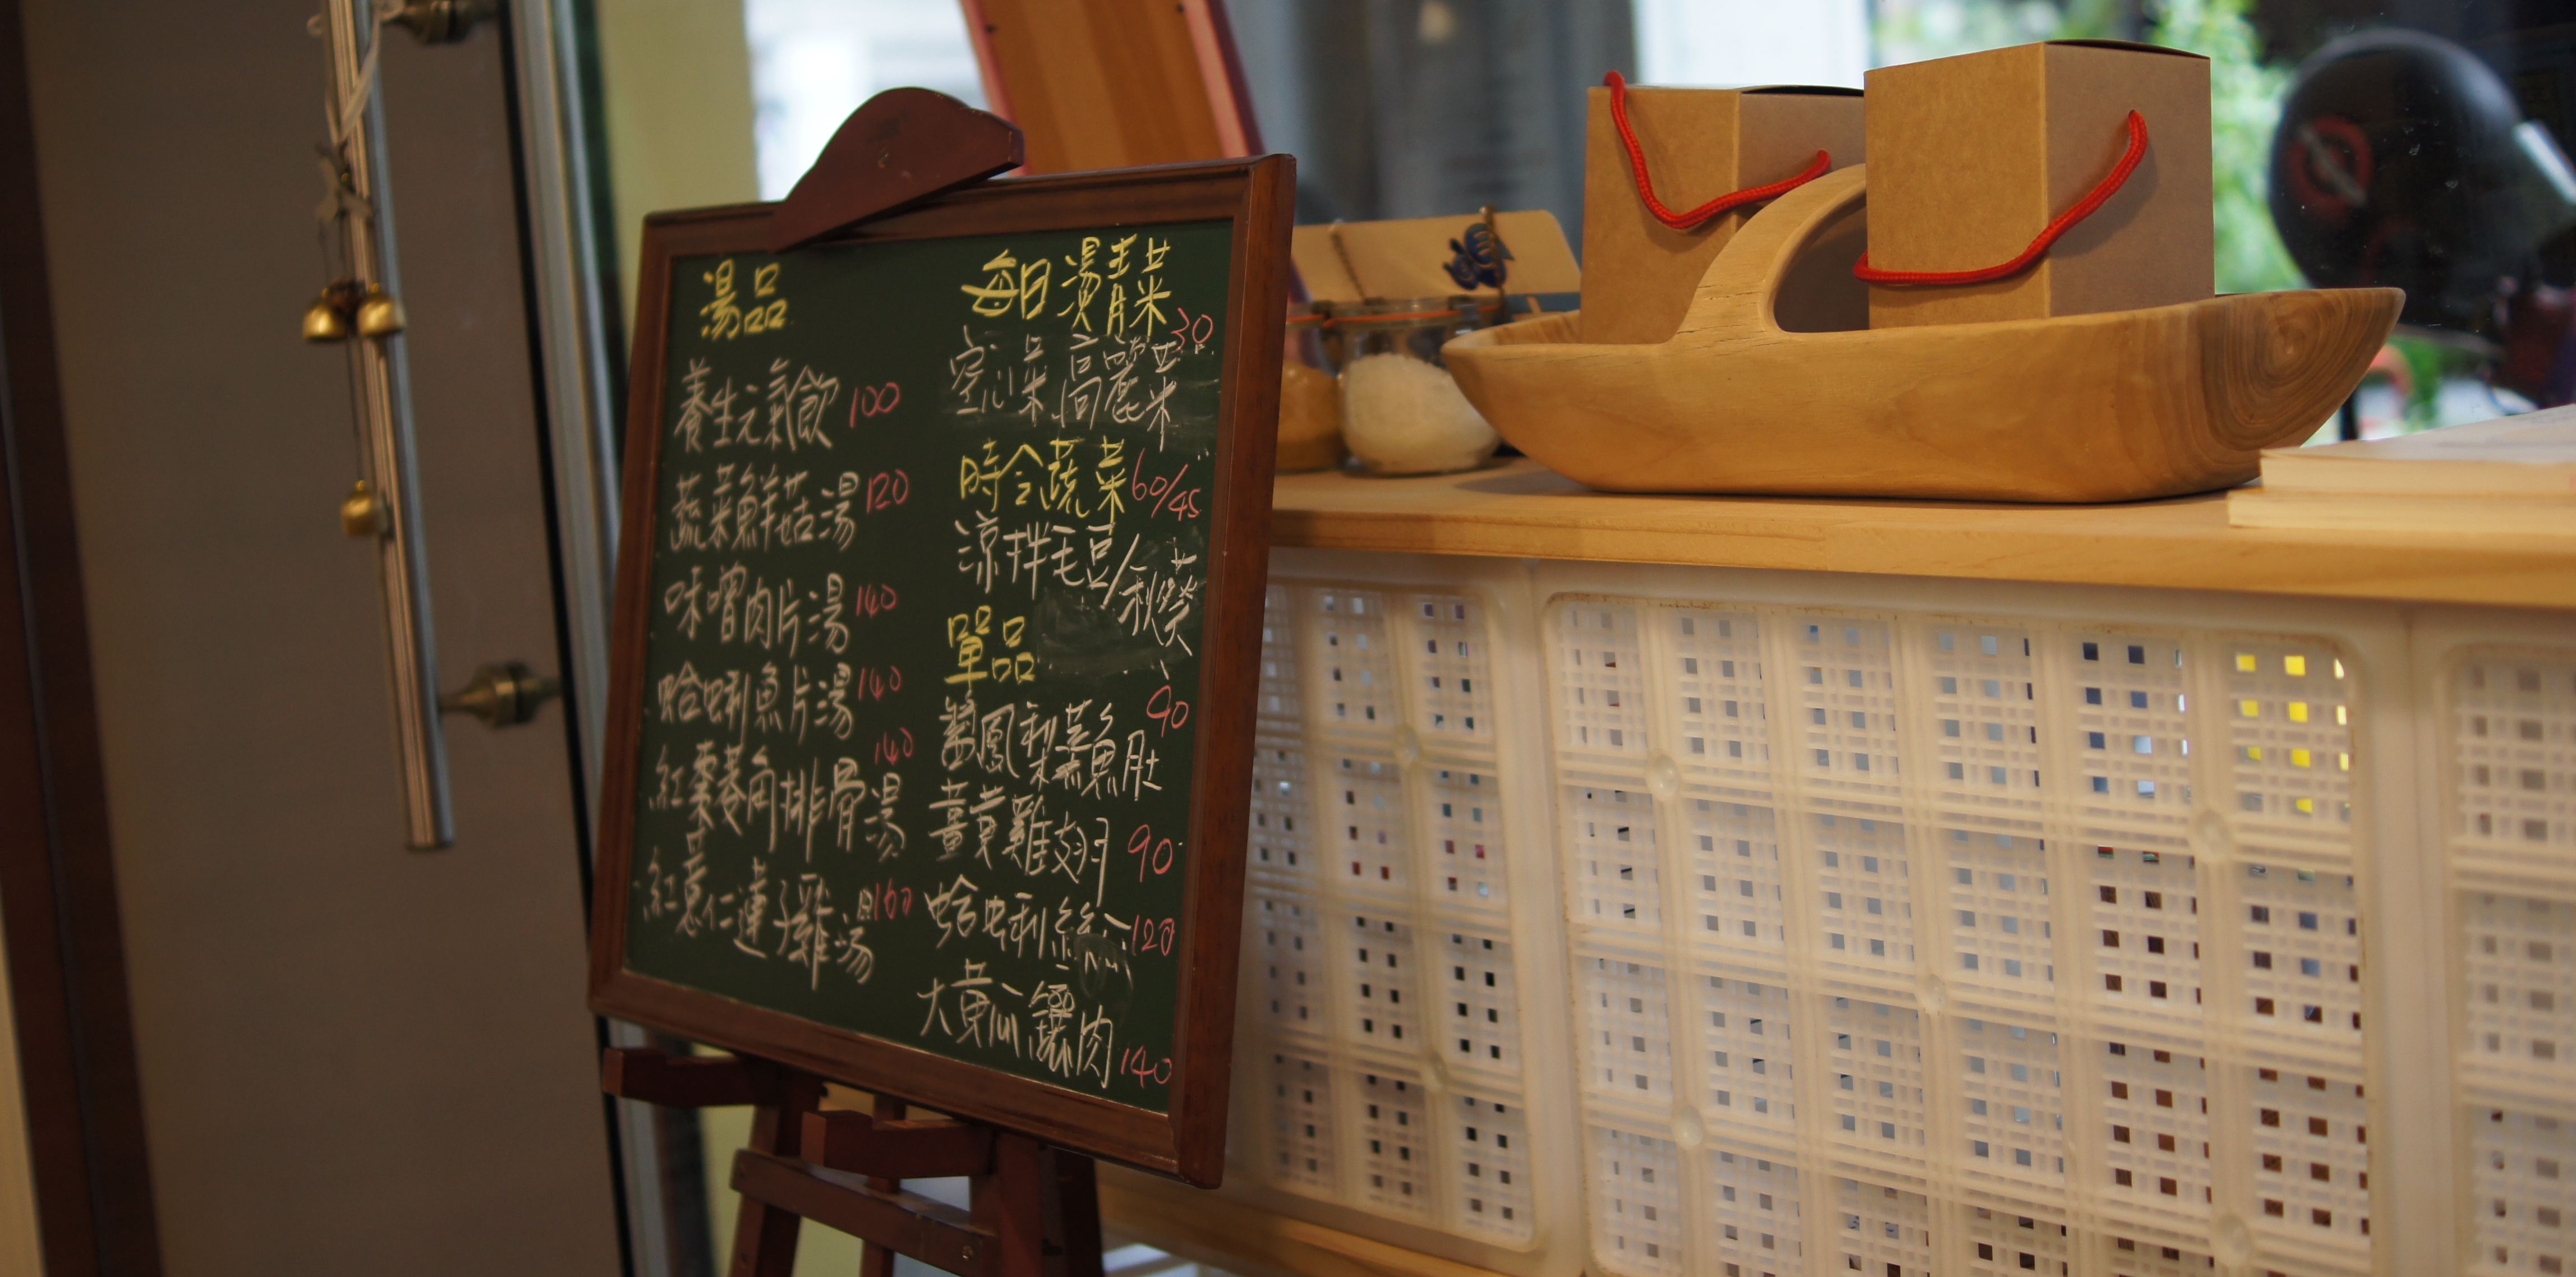 湯品
養生元氣飲 100
蔬菜鮮菇湯 120
味噌肉片湯 140
蛤蜊魚片湯 140
紅棗菱角排骨湯 140
紅薏仁蓮子雞湯 160
每日燙青菜 30
空心菜 高麗菜
時令蔬菜 60/45
涼拌毛豆/秋葵
單品
醬鳳梨蒸魚肚 90
薑黃雞翅 90
蛤蜊絲 120
大黃瓜鑲肉 140